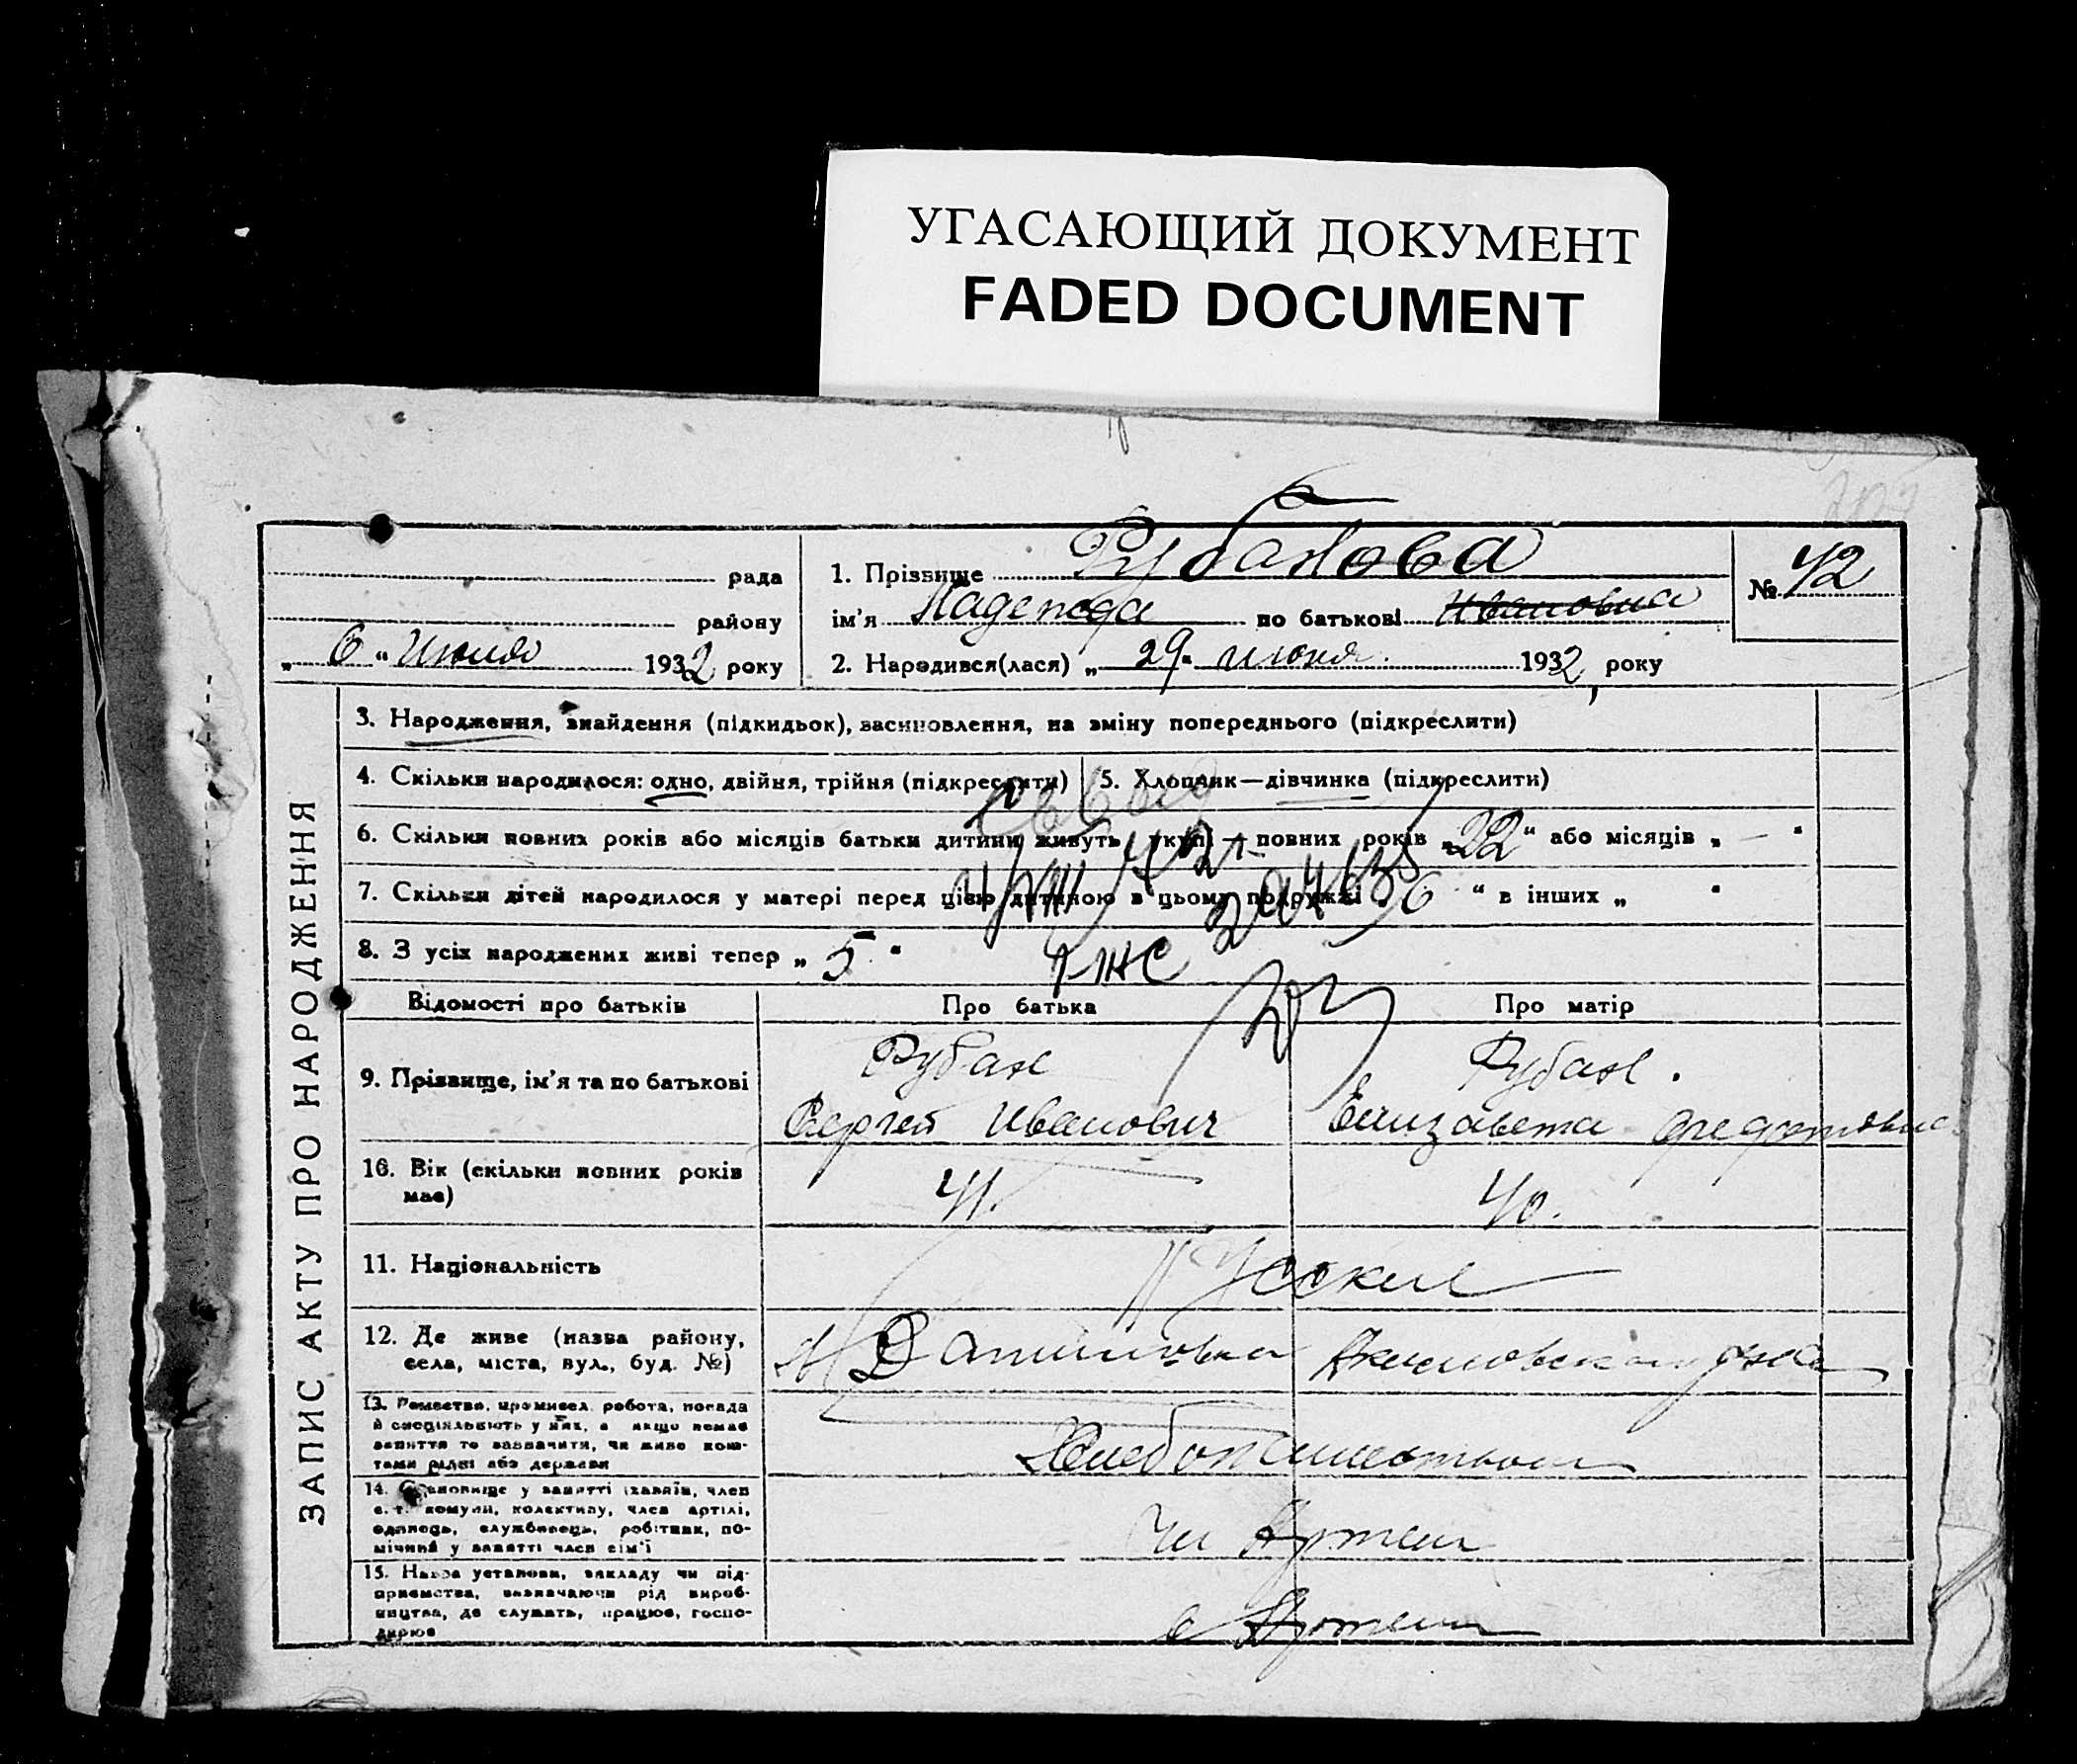 УГАСАЮЩИЙ ДОКУМЕНТ
FADED DOCUMENT
рада
району
„ 6 “ Июля 1932 року
1. Прізвище Рубанова
ім’я Надежда по батькові Ивановна
2. Народився(лася) „ 29 “ июня 1932 року
№ 42
ЗАПИС АКТУ ПРО НАРОДЖЕННЯ
3. Народження, знайдення (підкидьок), засиновлення, на зміну попереднього (підкреслити)
4. Скільки народилося: одно, двійня, трійня (підкреслити)
5. Хлопчик—дівчинка (підкреслити)
6. Скільки повних років або місяців батьки дитини живуть укупі — повних років „ 22 “ або місяців „ — “
7. Скільки дітей народилося у матері перед цією дитиною в цьому подружжі „ 6 “ в інших „ “
8. З усіх народжених живі тепер „ 5 “
Відомості про батьків
Про батька
Про матір
9. Прізвище, ім’я та по батькові
Рубан
Сергей Иванович
Рубан.
Елизавета Федотовна
10. Вік (скільки повних років
має)
41.
40.
11. Національність
Русские
12. Де живе (назва району,
села, міста, вул., буд. №)
13. Ремество, промисел, робота, посада
й спеціяльність у них, а якщо немає
заняття то зазначити, чи живе кош-
тами рідні або держави
Хлебопашеством
14. Становище у занятті (хазяїн, член
с.-г. комуни, колективу, член артілі,
одинець, службовець, робітник, по-
мічний у занятті член сім’ї
Чл Артели
15. Назва установи, закладу чи під-
приємства, визначаючи рід вироб-
ництва, де служать, працює, госпо-
дарює
в Артели